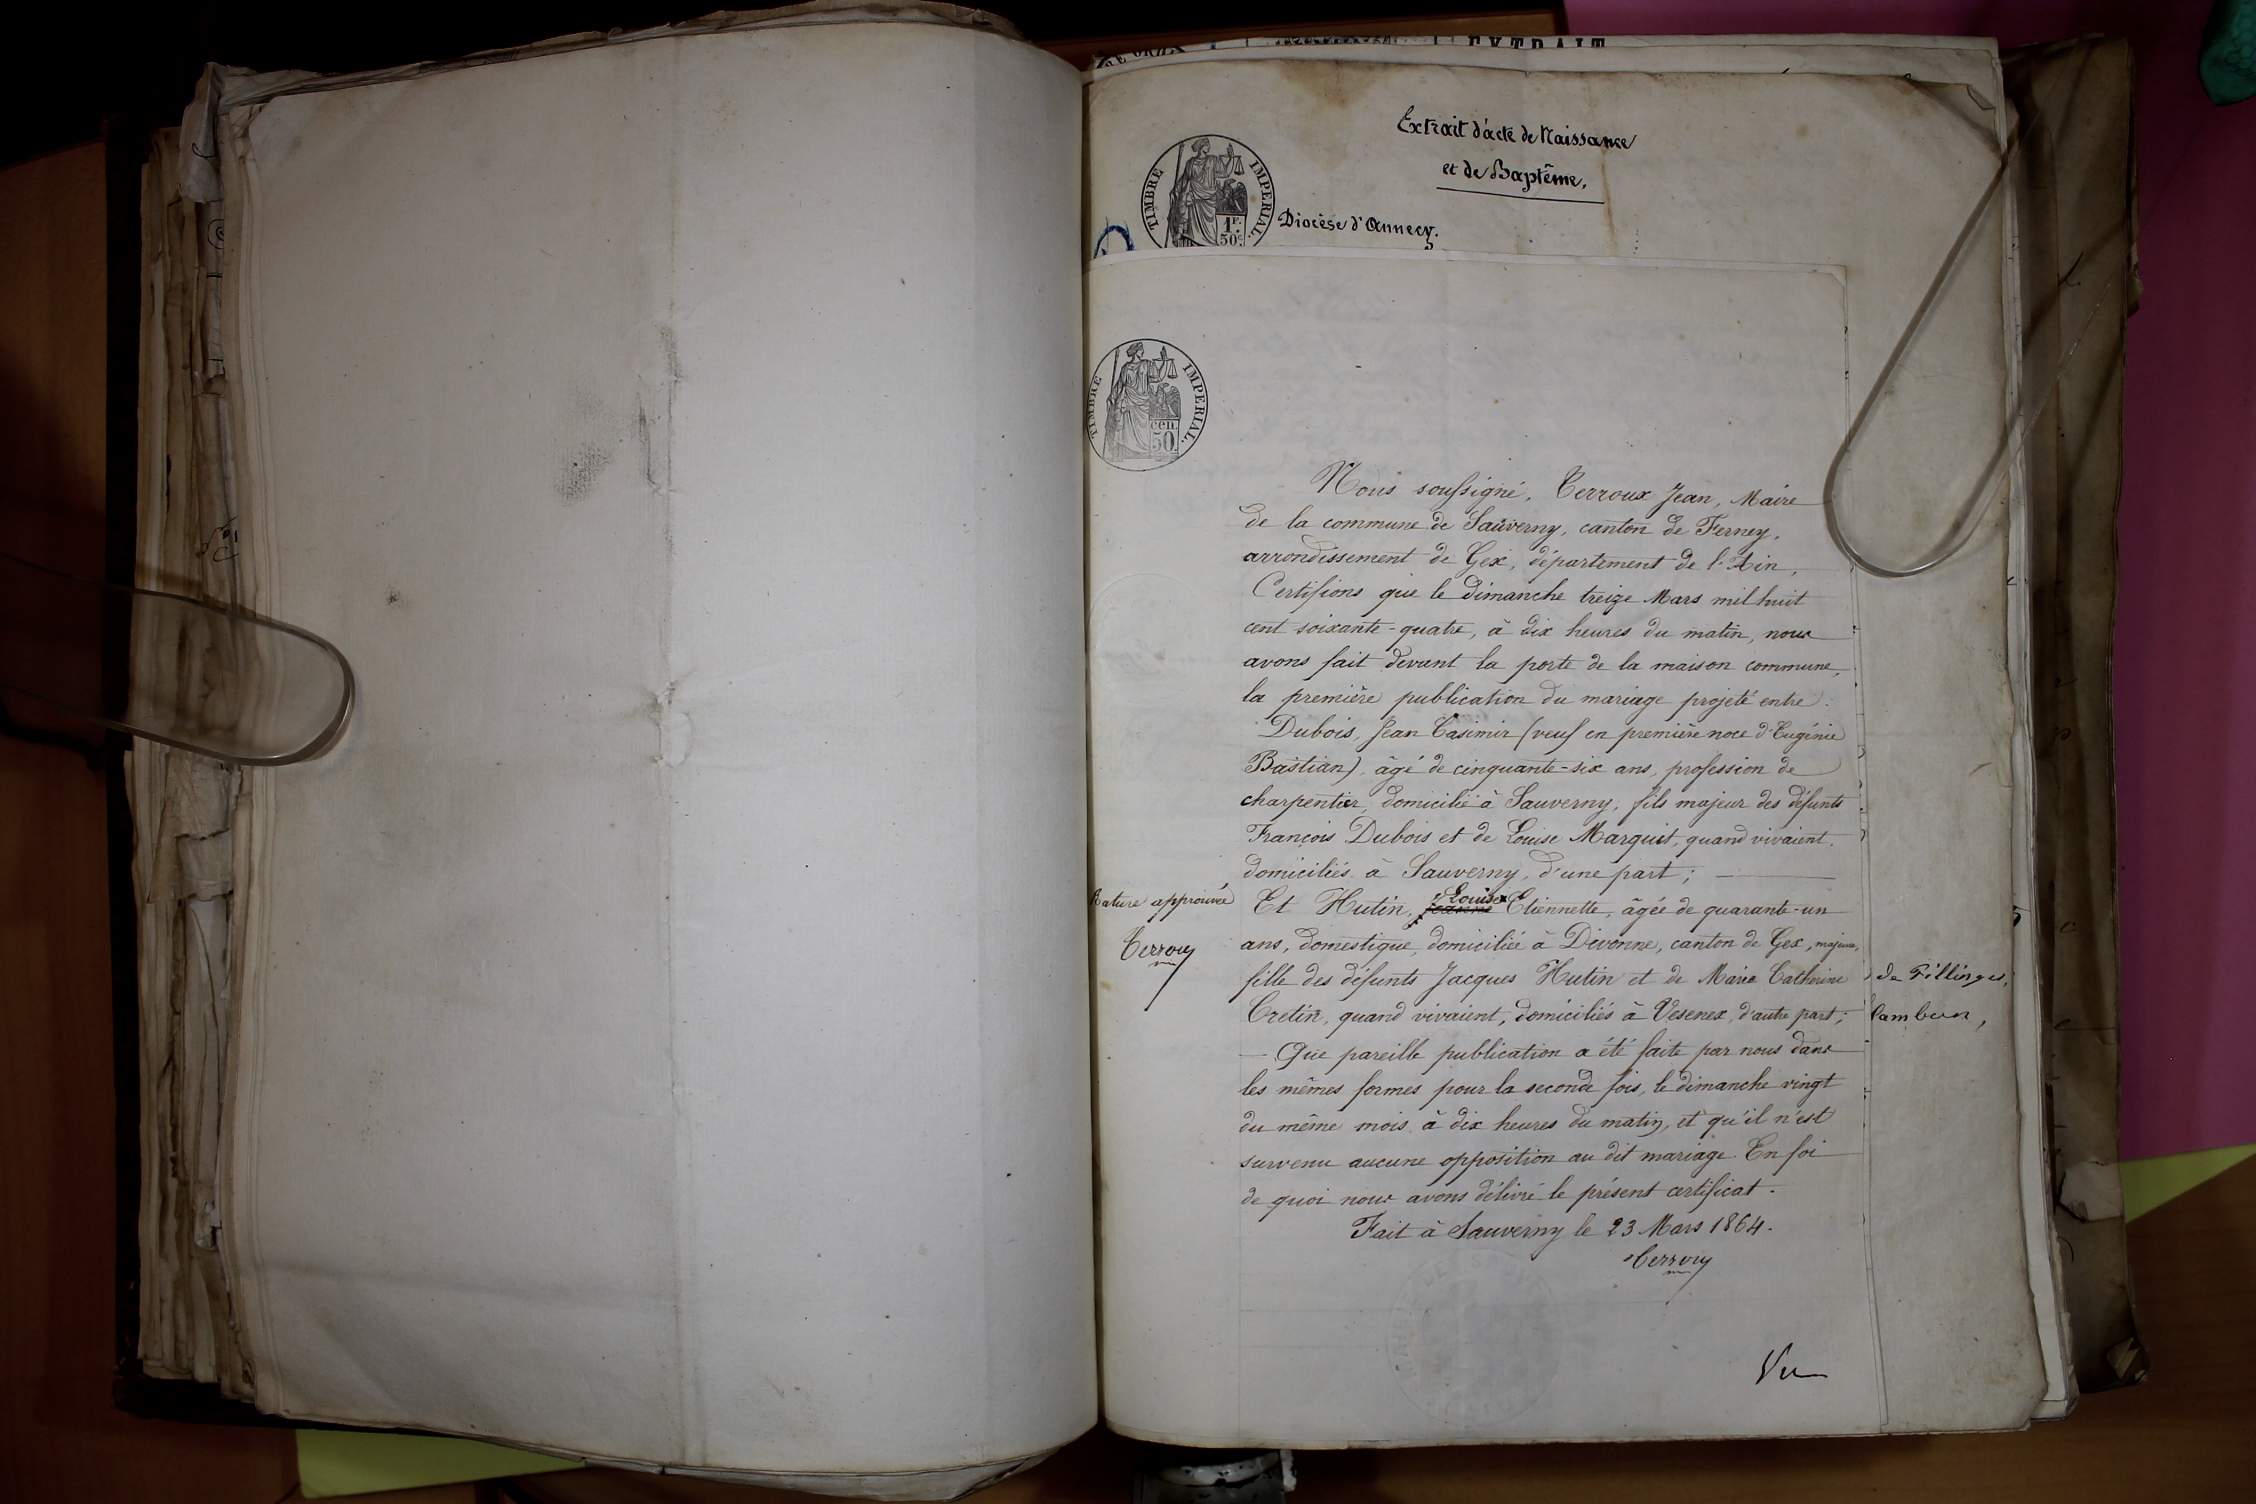 EXTRAIT
Extrait d'acte de Naissance
et de Baptême.
TIMBRE IMPERIAL.
1F.
50c
Diocèse d'Annecy.
TIMBRE IMPERIAL.
cen.
50
Nous soussigné, Terroux Jean, Maire
de la commune de Sauverny, canton de Ferney,
arrondissement de Gex, département de l'Ain,
Certifions que le dimanche treize Mars mil huit
cent soixante-quatre, à dix heures du matin, nous
avons fait devant la porte de la maison commune,
la première publication du mariage projeté entre:
Dubois, Jean Casimir (veuf en première noce d'Eugénie
Bastian), âgé de cinquante-six ans, profession de
charpentier, domicilié à Sauverny, fils majeur des défunts
François Dubois et de Louise Marquit, quand vivaient,
domiciliés à Sauverny, d'une part;
Rature approuvée
Terroux
Et Hutin, Louise Etiennette, âgée de quarante-un
ans, domestique, domiciliée à Divonne, canton de Gex, majeure,
fille des défunts Jacques Hutin et de Marie Catherine
Cretin, quand vivaient, domiciliés à Vesenex, d'autre part;
de Fillinges,
Que pareille publication a été faite par nous dans
les mêmes formes pour la seconde fois, le dimanche vingt
du même mois à dix heures du matin, et qu'il n'est
survenu aucune opposition au dit mariage. En foi
de quoi nous avons délivré le présent certificat.
Fait à Sauverny le 23 Mars 1864.
Terroux
Vu